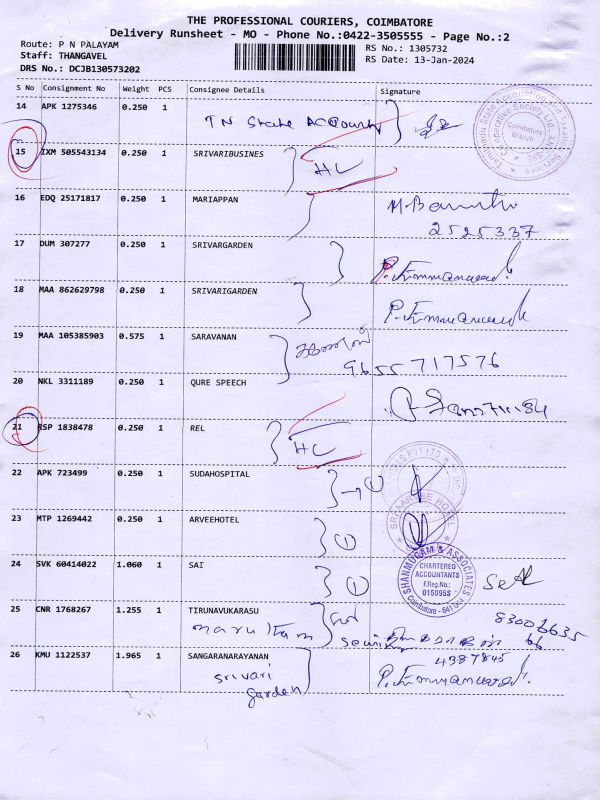 THE PROFESSIONAL COURIERS, COIMBATORE
Delivery Runsheet - MO - Phone No.:0422-3505555 - Page No.:2
Route: P N PALAYAM
Staff: THANGAVEL
DRS No.: DCJB130573202
RS No.: 1305732
RS Date: 13-Jan-2024
S No Consignment No Weight PCS Consignee Details Signature
14 APK 1275346 0.250 1
TN State Accounts
15 IXM 505543134 0.250 1 SRIVARIBUSINES
HC
16 EDQ 25171817 0.250 1 MARIAPPAN
2525337
17 DUM 307277 0.250 1 SRIVARGARDEN
18 MAA 862629798 0.250 1 SRIVARIGARDEN
19 MAA 105385903 0.575 1 SARAVANAN
9655717576
20 NKL 3311189 0.250 1 QURE SPEECH
21 RSP 1838478 0.250 1 REL
HC
22 APK 723499 0.250 1 SUDAHOSPITAL
23 MTP 1269442 0.250 1 ARVEEHOTEL
1
24 SVK 60414022 1.060 1 SAI
1
SHANMUGAM & ASSOCIATES
CHARTERED
ACCOUNTANTS
F.Reg.No.:
015095S
Coimbatore - 641
25 CNR 1768267 1.255 1 TIRUNAVUKARASU
26 KMU 1122537 1.965 1 SANGARANARAYANAN
srivari
garden